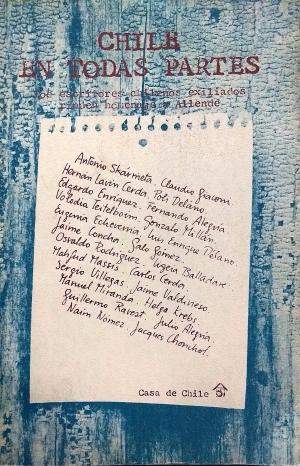 CHILE
EN TODAS PARTES
los escritores chilenos exiliados
rinden homenaje a Allende
Antonio Skármeta, Claudio Giaconi
Hernán Lavín Cerda, Poli Délano,
Edgardo Enríquez, Fernando Alegría
Volodia Teitelboim, Gonzalo Millán,
Eugenia Echeverría, Luis Enrique Délano
Jaime Concha, Galo Gómez,
Osvaldo Rodríguez, Ligeia Balladares
Mahfud Massís, Carlos Cerda,
Sergio Villegas, Jaime Valdivieso,
Manuel Miranda, Helga Krebs,
Guillermo Ravest, Julio Alegría,
Naín Nómez, Jacques Chonchol.
Casa de Chile